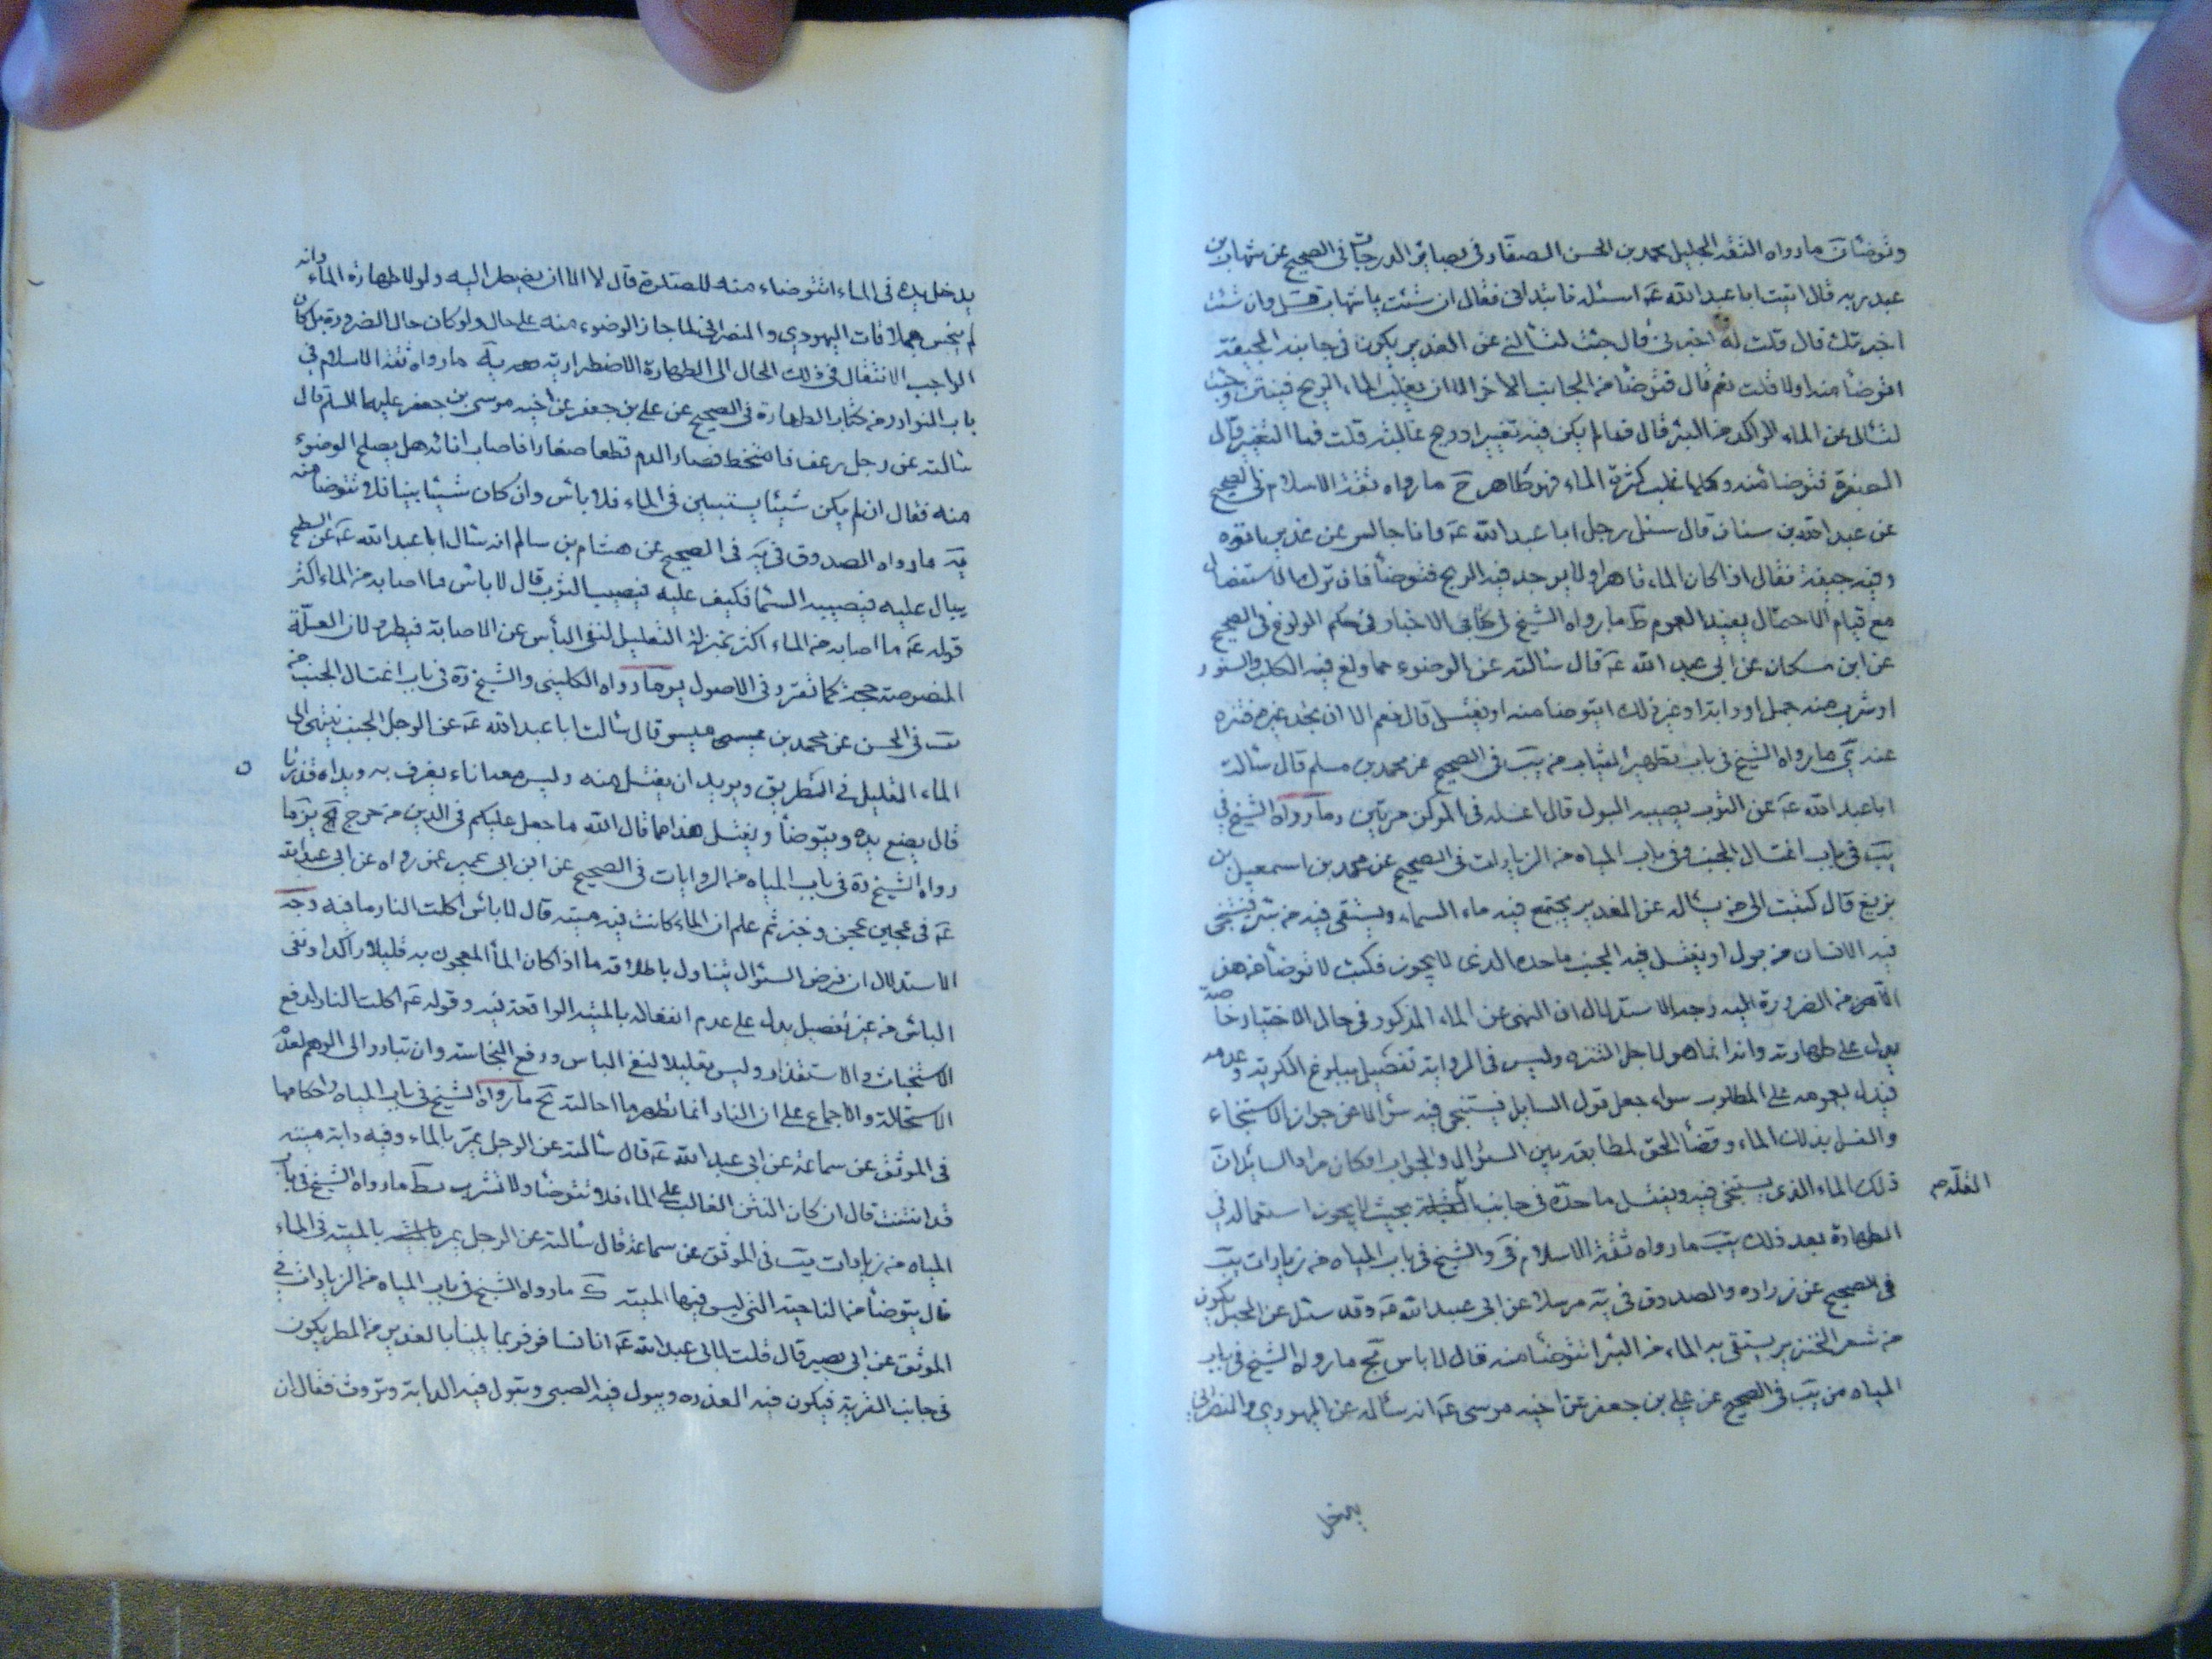 وتوضأت ما رواه الثقة الجليل محمد بن الحسن الصفار في بصائر الدرجات في الصحيح عن شهاب بن
عبد ربه قال اتيت ابا عبد الله عه اسئله فابتداني فقال ان شئت يا شهاب فسل وان شئت
اخبرتك قال قلت له اخبرني قال جئت لتسألني عن الغدير يكون في جانبه الجيفة
اتوضأ منه اولا قلت نعم قال فتوضأ من الجانب الاخر الا ان يغلب الماء الريح فينتن وجئت
لتسال عن الماء الراكد من البئر قال فما لم يكن فيه تغيير او ريح غالبة قلت فما التغير قال
الصفرة فتوضأ منه وكلما غلب كثرة الماء فهو طاهر ح ما رواه ثقة الاسلام في الصحيح
عن عبد الله بن سنان قال سئل رجل ابا عبد الله عه وانا جالس عن غدير اتوه
وفيه جيفة فقال اذا كان الماء قاهرا ولا يوجد فيه الريح فتوضأ فان ترك الاستفصال
مع قيام الاحتمال يفيد العموم ط ما رواه الشيخ في كتابي الاخبار في حكم الولوغ في الصحيح
عن ابن مسكان عن ابي عبد الله عه قال سئالته عن الوضوء مما ولغ فيه الكلب والسنور
او شرب منه جمل او دابة او غير ذلك ايتوضأ منه او يغتسل قال نعم الا ان تجد غيره فتنزه
عنه ي ما رواه الشيخ في باب تطهير الثياب من يب في الصحيح عن محمد بن مسلم قال سئالت
ابا عبد الله عه عن الثوب يصيبه البول قال اغسله في المركن مرتين وما رواه الشيخ في
يب في باب اغتسال الجنب وفي باب المياه من الزيادات في الصحيح عن محمد بن اسمعيل بن
بزيع قال كتبت الى من يسأله عن الغدير يجتمع فيه ماء السماء ويستقى فيه من بئر فيستنجي
فيه الانسان من بول او يغتسل فيه الجنب ما حده الذي لا يجوز فكتب لا توضأ من هذا
الا من الضرورة اليه وجه الاستدلال ان النهي عن الماء المذكور في حال الاختيار خاصة
يدل على طهارته وانه انما هو لاجل التنزه وليس في الرواية تفصيل ببلوغ الكرية وعدمه
فيدل بعمومه على المطلوب سواء جعل قول السايل فيستنجي فيه سؤالا عن جواز الاستنجاء
والغسل بذلك الماء وقضأ لحق المطابقة بين السئوال والجواب او كان مراد السائل ان
ذلك الماء الذي يستنجي فيه ويغتسل ما حده في جانب القلة بحيث لا يجوز استعماله في
القلة صح
الطهارة بعد ذلك يب ما رواه ثقة الاسلام في والشيخ في باب المياه من زيادات يب
في الصحيح عن زراره والصدوق في يه مرسلا عن ابي عبد الله عه وقد سئل عن الحبل يكون
من شعر الخنزير يستقى به الماء من البئر ايتوضأ منه قال لا باس يج ما رواه الشيخ في باب
المياه من يب في الصحيح عن علي بن جعفر عن اخيه موسى عه انه سئاله عن اليهودي والنصراني
يدخل
يدخل يده في الماء ايتوضاء منه للصلوة قال لا الا ان يضطر اليه ولولا طهارة الماء وانه
لم ينجس بملاقات اليهودي والنصراني لما جاز الوضوء منه على حال ولو كان حال الضرورة بل كان
الواجب الانتقال في ذلك الحال الى الطهارة الاضطرارية يد ما رواه ثقة الاسلام في
باب النوادر من كتاب الطهارة في الصحيح عن علي بن جعفر عن اخيه موسى بن جعفر عليهما السلم قال
سئالته عن رجل رعف فامتخط فصار الدم قطعا صغارا فاصاب انائه هل يصلح الوضوء
منه فقال ان لم يكن شيئا يستبين في الماء فلا باس وان كان شيئا بينا فلا تتوضأ منه
يه ما رواه الصدوق في يه في الصحيح عن هشام بن سالم انه سئال ابا عبد الله عه عن السطح
يبال عليه فيصيبه السماء فكيف عليه فيصيب الثوب قال لا باس ما اصابه من الماء اكثر
قوله عه ما اصابه من الماء اكثر بمنزلة التعليل لنفي البأس عن الاصابة فيطرد لان العلة
المنصوصة حجة كما تقرر في الاصول يو ما رواه الكليني والشيخ ره في باب اغتسال الجنب من
يب في الحسن عن محمد بن عيسى ميسر قال سئالت ابا عبد الله عه عن الرجل الجنب ينتهي الى
الماء القليل في الطريق ويريد ان يغتسل منه وليس معه اناء يغرف به ويداه قذرتان
قال يضع يده ويتوضأ ويغتسل هذا مما قال الله ما جعل عليكم في الدين من حرج يز ما
رواه الشيخ ره في باب المياه من الروايات في الصحيح عن ابن ابي عمير عمن رواه عن ابي عبد الله
عه في عجين عجن وخبز ثم علم ان الماء كانت فيه ميتة قال لا باس اكلت النار ما فيه وجه
الاستدلال ان فرض السئوال يتناول باطلاقه ما اذا كان الماء المعجون به قليلا راكدا ونفى
البائس من غير تفصيل يدل على عدم انفعاله بالميتة الواقعة فيه وقوله عه اكلت النار لدفع
الاستخباث والاستقذار وليس تعليلا لنفي الباس ورفع النجاسة وان تبادر الى الوهم لعدم
الاستحالة والاجماع على ان النار انما تطهر ما احالته يح ما رواه الشيخ في باب المياه واحكامها
في الموثق عن سماعة عن ابي عبد الله عه قال سئالته عن الرجل يمر بالماء وفيه دابة ميتة
قد انتنت قال ان كان النتن الغالب على الماء فلا تتوضأ ولا تشرب يط ما رواه الشيخ في باب
المياه من زيادات يب في الموثق عن سماعة قال سئالته عن الرجل يمر بالميتة في الماء
قال يتوضأ من الناحية التي ليس فيها الميتة ك ما رواه الشيخ في باب المياه من الزيادات في
الموثق عن ابي بصير قال قلت لابي عبد الله عه انا نسافر فربما بلينا بالغدير من المطر يكون
في جانب القرية فيكون فيه العذره ويبول فيه الصبي وتبول فيه الدابة وتروث فقال ان